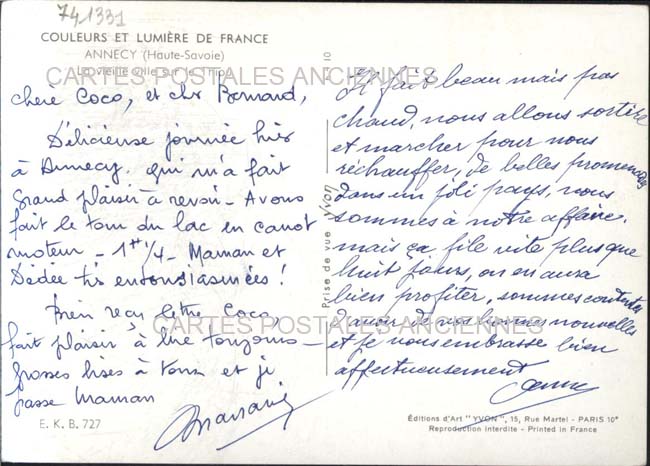 741331
COULEURS ET LUMIÈRE DE FRANCE
ANNECY (Haute-Savoie)
La vieille ville sur le
CARTES POSTALES ANCIENNES
chère Coco, et cher Bernard,
Délicieuse journée hier
à Annecy. qui m'a fait
grand plaisir à revoir - Avons
fait le tour du lac en canot
moteur - 1H 1/4 - Maman et
Dédée très enthousiasmées !
Bien reçu lettre Coco,
fait plaisir à lire toujours -
Grosses bises à tous et je
passe Maman
E. K. B. 727
10
Prise de vue Yvon
Il fait beau mais pas
chaud, nous allons sortir
et marcher pour nous
réchauffer, de belles promenades
dans un joli pays, nous
sommes à notre affaire.
mais ça file vite plus que
huit jours, on en aura
bien profiter, sommes contentes
d'avoir de vos bonnes nouvelles
et je vous embrasse bien
affectueusement
CARTES POSTALES ANCIENNES
Éditions d'Art "YVON", 15, Rue Martel - PARIS 10e
Reproduction interdite - Printed in France